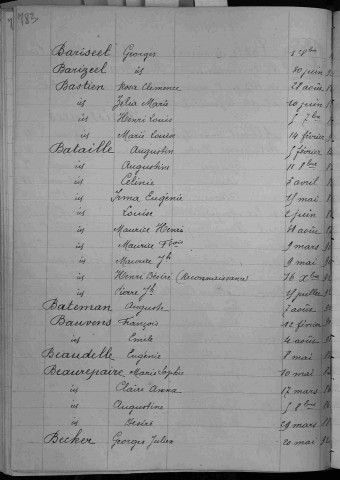 783
Bariseel Georges 1 8bre
Barizeel id 30 juin
Bastien Rosa Clémence 28 août
id Zélia Marie 20 juin
id Henri Louis 5 7bre
id Marie Louise 14 février
Bataille Augustin 5 février
id Augustine 11 8bre
id Célinie 3 avril
id Irma Eugénie 15 mai
id Louise 2 juin
id Maurice Henri 18 août
id Maurice Fçois 9 mars
id Maurice Jh 9 mai
id Henri Désiré (Reconnaissance) 16 Xbre
id Pierre Jh juillet
Bateman Auguste août
Bauvens François 12 février
id Emile 4 août
Beaudelle Eugénie 8 mai
Beaurepaire Marie Sophie 10 mai
id Claire Anna 17 mars
id Augustine 5 8bre
id Désiré 29 mars
Becker Georges Julien 20 mai